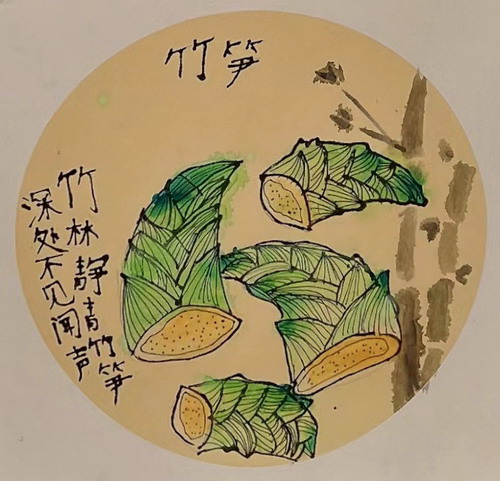 竹笋
竹林静青竹笋
深处不见闻声